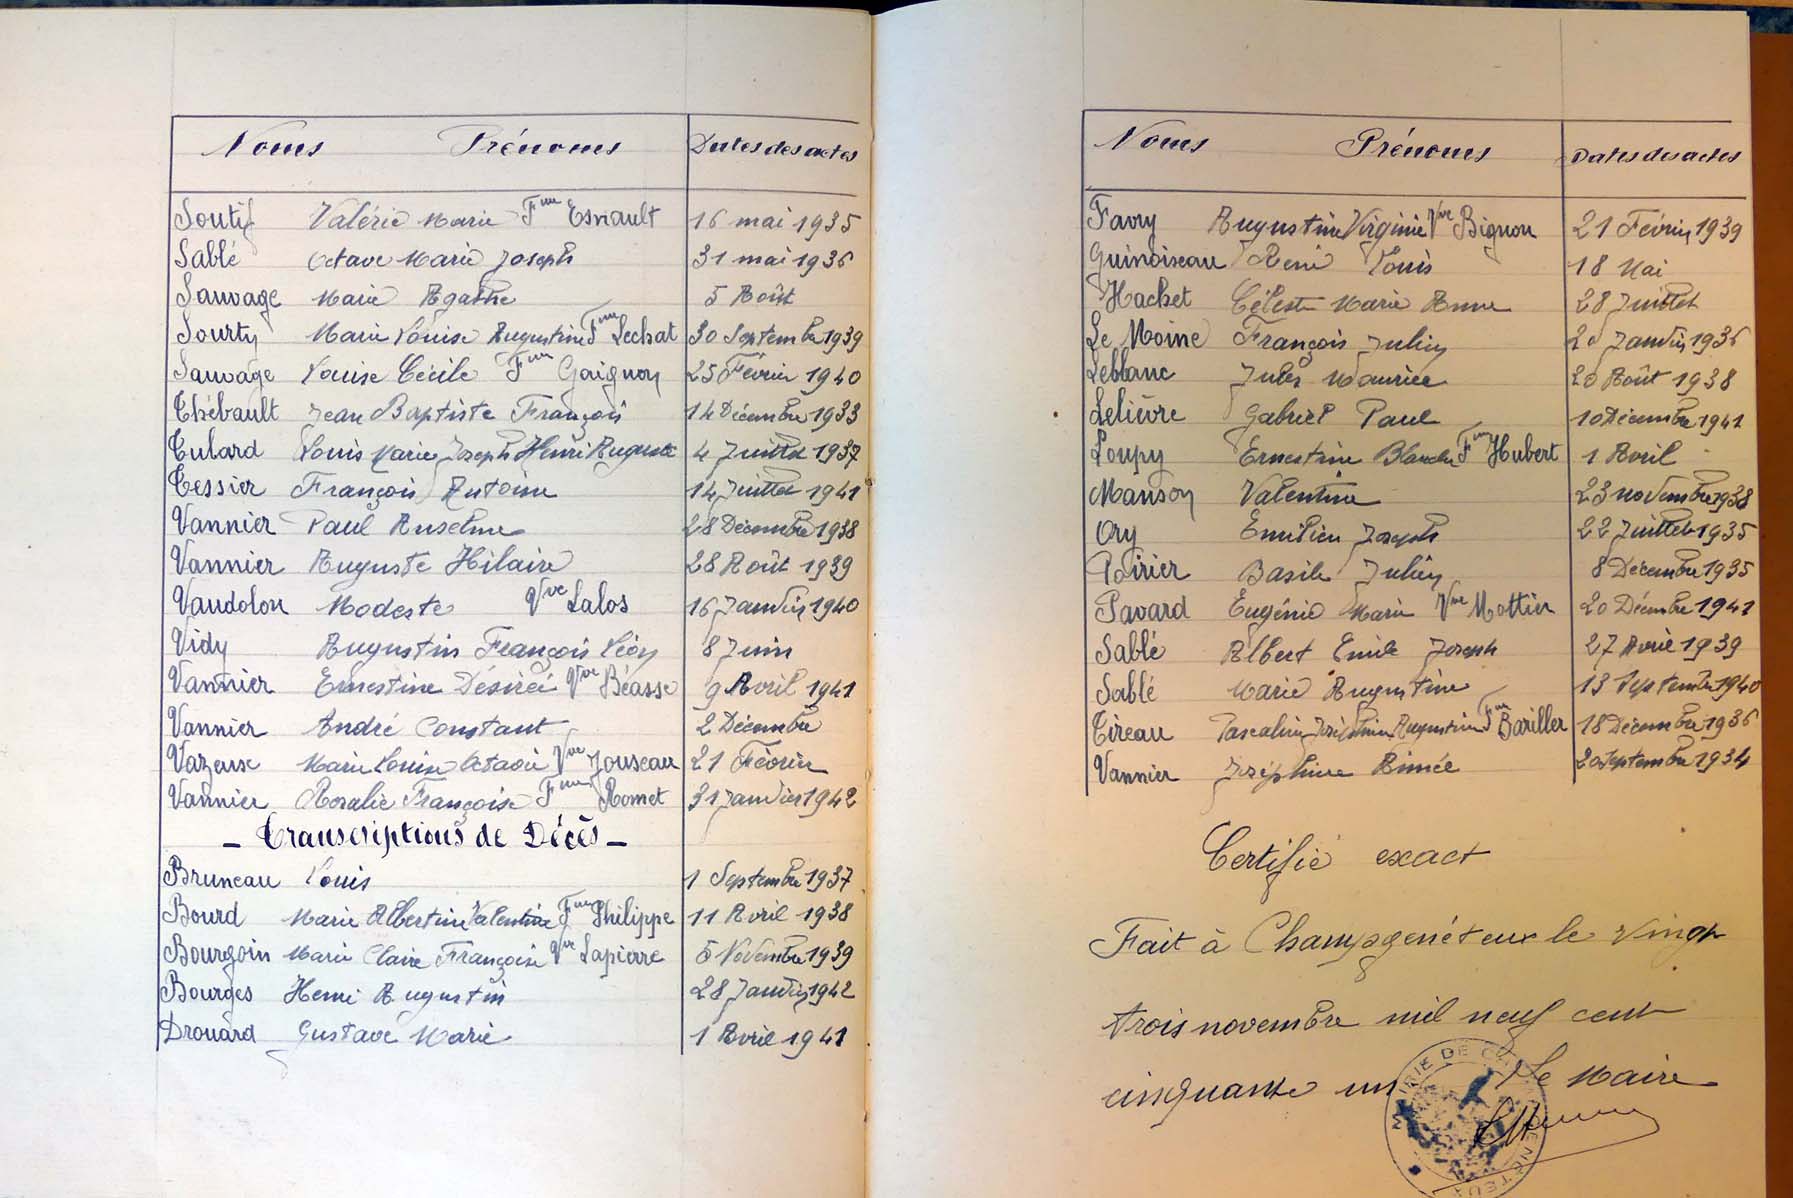 Noms Prénoms Dates des actes
Soutif Valérie Marie Fme Esnault 16 mai 1935
Sablé Octave Marie Joseph 31 mai 1936
Sauvage Marie Agathe 5 Août
Sourty Marie Louise Augustine Fme Lechat 30 Septembre 1939
Sauvage Louise Cécile Fme Gaignon 25 Février 1940
Thébault Jean Baptiste François 14 Décembre 1933
Tulard Louis Marie Joseph Henri Auguste 4 Juillet 1937
Tessier François Antoine 14 Juillet 1941
Vannier Paul Anselme 28 Décembre 1938
Vannier Auguste Hilaire 28 Août 1939
Vaudolon Modeste Vve Lalos 16 Janvier 1940
Vidy Augustin François Léon 8 Juin
Vannier Ernestine Désirée Vve Béasse 9 Avril 1941
Vannier André Constant 2 Décembre
Vazeuse Marie Louise Octavie Vve Jouseau 21 Février
Vannier Rosalie Françoise Fme Romet 31 Janvier 1942
- Transcriptions de Décès -
Bruneau Louis 1 Septembre 1937
Bourd Marie Albertine Valentine Fme Philippe 11 Avril 1938
Bourgoin Marie Claire Françoise Vve Lapierre 5 Novembre 1939
Bourges Henri Augustin 28 Janvier 1942
Drouard Gustave Marie 1 Avril 1941
Noms Prénoms Dates des actes
Favry Augustine Virginie Vve Bignon 21 Février 1939
Guinoiseau René Louis 18 Mai
Hachet Céleste Marie Anne 28 Juillet
Le Moine François Julien 20 Janvier 1936
Lebbanc Jules Maurice 20 Août 1938
Lelièvre Gabriel Paul 10 Décembre 1941
Loupy Ernestine Blanche Fme Hubert 1 Avril
Manson Valentine 23 novembre 1938
Ory Emilien Joseph 22 Juillet 1935
Poirier Basile Julien 8 Décembre 1935
Pavard Eugénie Marie Vve Mottier 20 Décembre 1941
Sablé Albert Emile Joseph 27 Avril 1939
Sablé Marie Augustine 13 Septembre 1940
Tireau Pascaline Joséphine Augustine Fme Bariller 18 Décembre 1936
Vannier Joséphine Aimée 20 Septembre 1934
Certifié exact
Fait à Champgenéteux le vingt
trois novembre mil neuf cent
cinquante un Le Maire
MAIRIE DE